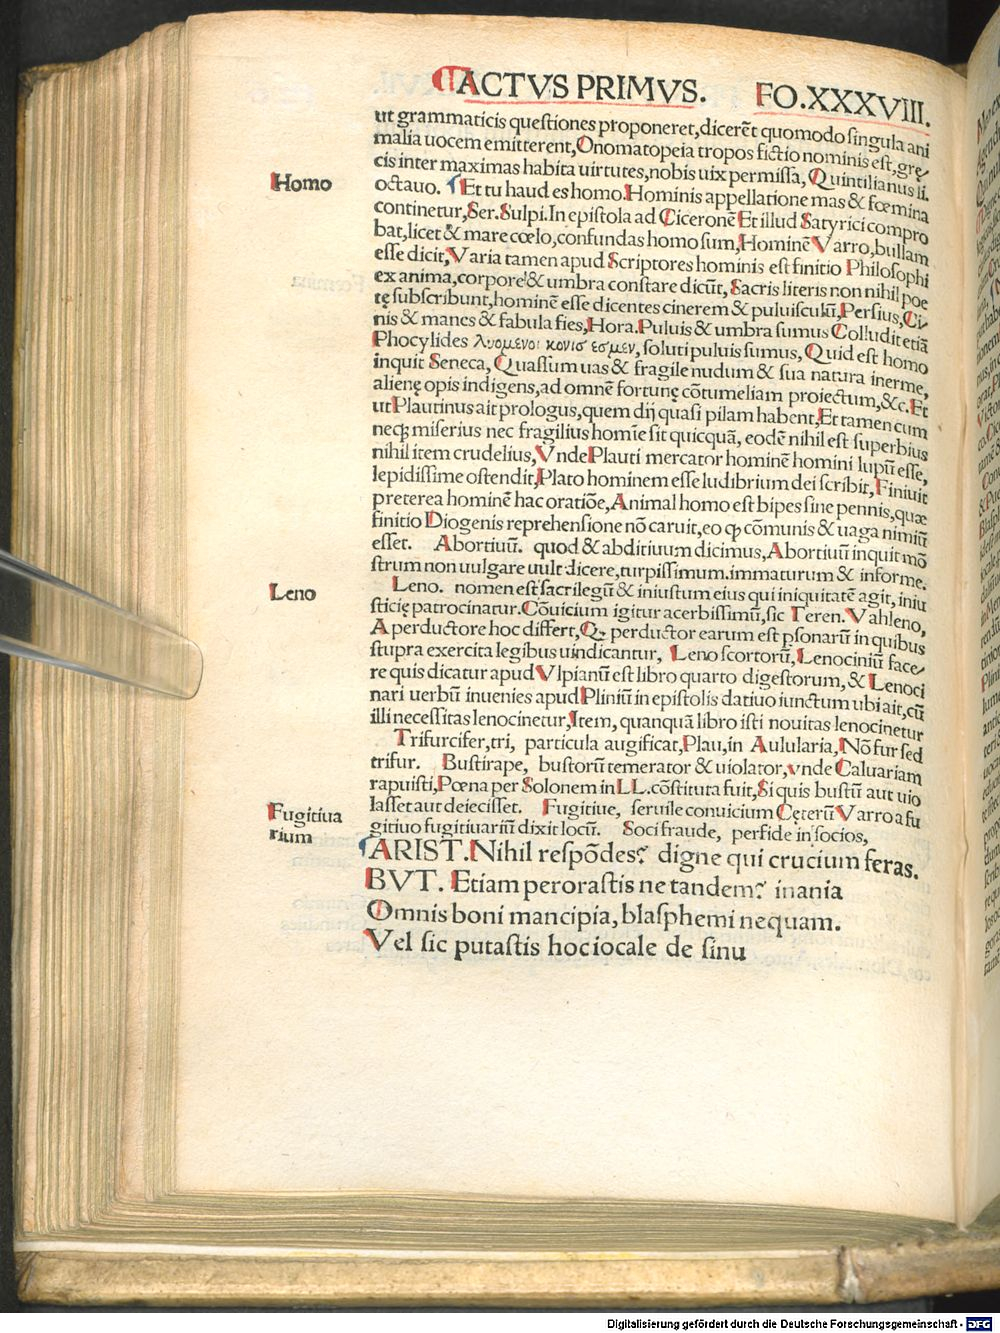 ACTVS PRIMVS. FO.XXXVIII.
ut grammaticis questiones proponeret,dicerēt quomodo singula ani
malia uocem emitterent,Onomatopeia tropos fictio nominis est,gręˏ
cis inter maximas habita uirtutes,nobis uix permissa, Quintilianus li.
Homo
octauo. Et tu haud es homo.Hominis appellatione mas & fœmina
continetur,Ser.Sulpi.In epistola ad Ciceronē Et illud Satyrici compro
bat,licet & mare cœlo,confundas homo sum,Hominē Varro,bullam
esse dicit,Varia tamen apud Scriptores hominis est finitio Philosophi
ex anima,corpore & umbra constare dicūt, Sacris literis non nihil poe
tę subscribunt,hominē esse dicentes cinerem & puluisculū,Persius,Ci
nis & manes & fabula fies,Hora.Puluis & umbra sumus Colludit etiā
Phocylides λυομενοι κονισ εσμεν, soluti puluis sumus, Quid est homo
inquit Seneca, Quassum uas & fragile nudum & sua natura inerme,
alienę opis indigens,ad omnē fortunę cōtumeliam proiectum,&c.Et
ut Plautinus ait prologus,quem dij quasi pilam habent,Et tamen cum
neqꝫ miserius nec fragilius homīe sit quicquā, eodē nihil est superbius
nihil item crudelius,Vnde Plauti mercator hominē homini lupū esse,
lepidissime ostendit,Plato hominem esse ludibrium dei scribit,Finiuit
preterea hominē hac oratiōe,Animal homo est bipes sine pennis,quæ
finitio Diogenis reprehensione nō caruit,eo ꝙ cōmunis & uaga nimiū
esset. Abortiuū. quod & abditiuum dicimus,Abortiuū inquit mō
strum non uulgare uult dicere,turpissimum.immaturum & informe.
Leno
Leno. nomen est sacrilegū & iniustum eius qui iniquitatē agit, iniu
sticię patrocinatur.Cōuicium igitur acerbissimū,sic Teren.Vah leno,
A perductore hoc differt,Qꝫ perductor earum est ꝑsonarū in quibus
stupra exercita legibus uindicantur, Leno scortorū,Lenociniū faceˏ
re quis dicatur apud Vlpianū est libro quarto digestorum,& Lenoci
nari uerbū inuenies apud Pliniū in epistolis datiuo iunctum ubi ait,cū
illi necessitas lenocinetur,Item, quanquā libro isti nouitas lenocinetur
Trifurcifer,tri, particula augificat,Plau,in Aulularia,Nō fur sed
trifur. Bustirape, bustorū temerator & uiolator,vnde Caluariam
rapuisti,Pœna per Solonem in LL.cōstituta fuit,Si quis bustū aut uio
Fugitiua
rium
lasset aut deiecisset. Fugitiue, seruile conuicium Cęterū Varro a fu
gitiuo fugitiuariū dixit locū. Soci fraude, perfide in socios,
ARIST.Nihil respōdes? digne qui crucium feras.
BVT. Etiam perorastis ne tandem? inania
Omnis boni mancipia, blasphemi nequam.
Vel sic putastis hoc iocale de sinu
Digitalisierung gefördert durch die Deutsche Forschungsgemeinschaft - DFG